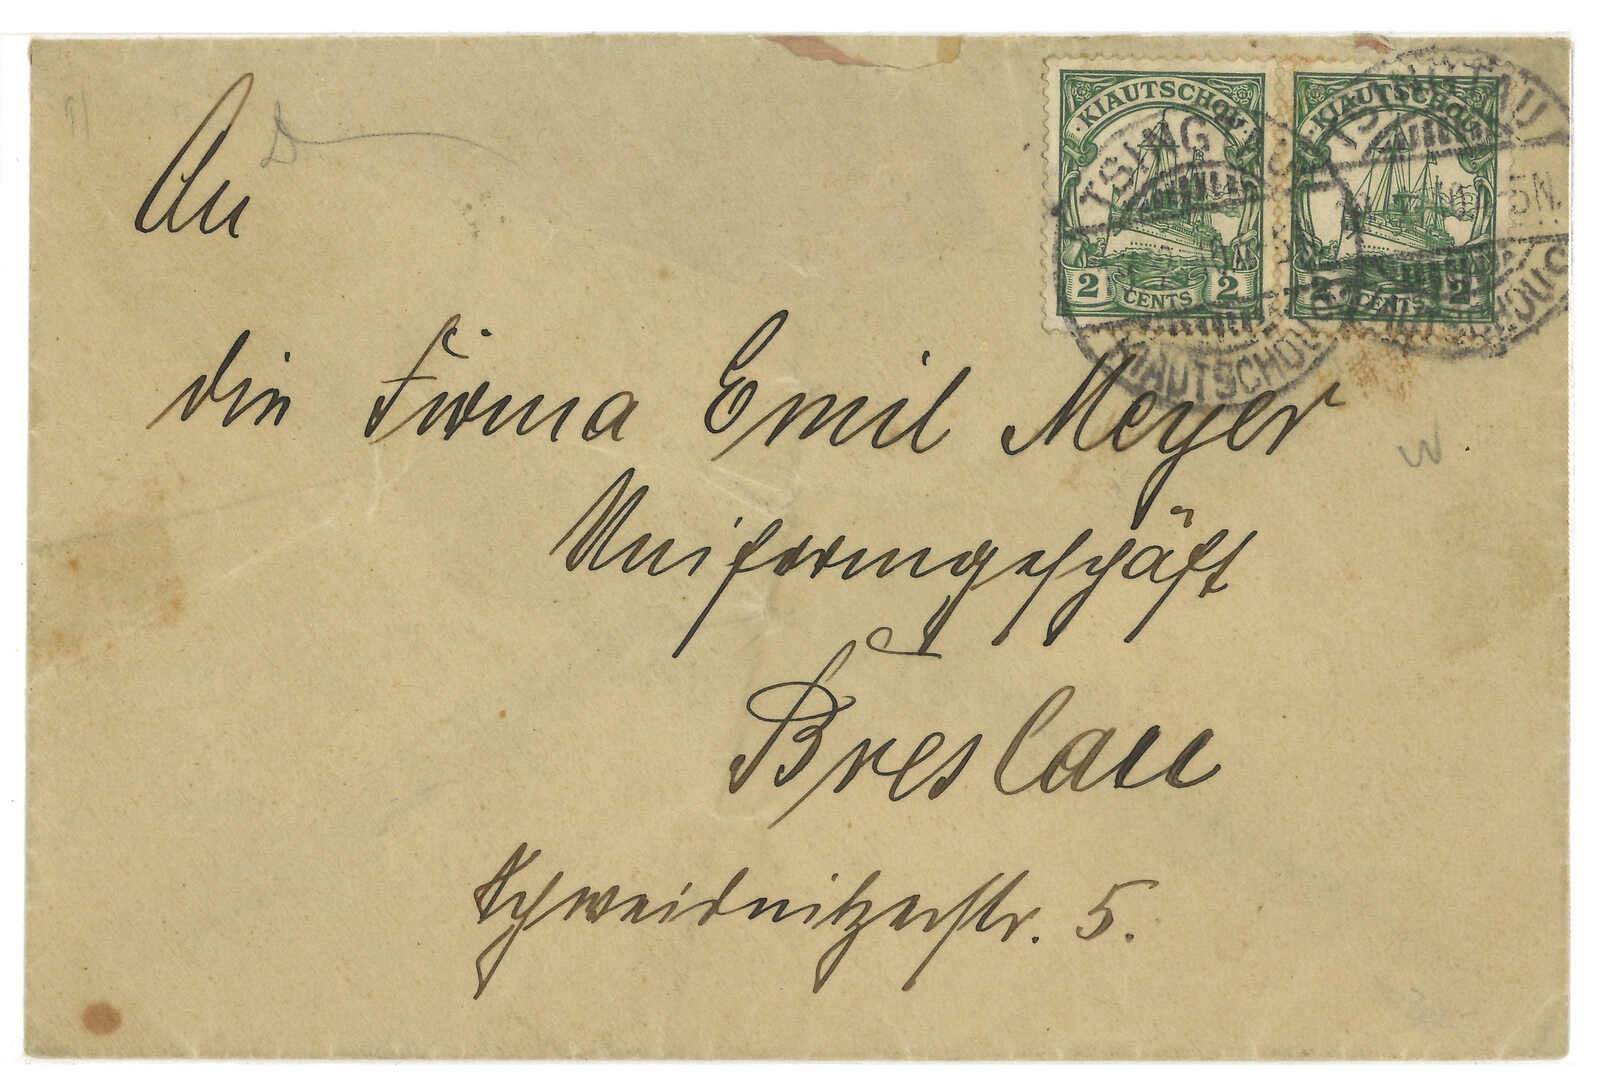 KIAUTSCHOU
2 CENTS 2
KIAUTSCHOU
2 CENTS 2
TSINGTAU
KIAUTSCHOU
TSINGTAU
5N.
KIAUTSCHOU
An
die Firma Emil Meyer
Uniformgeschäft
Breslau
Schweidnitzerstr. 5.